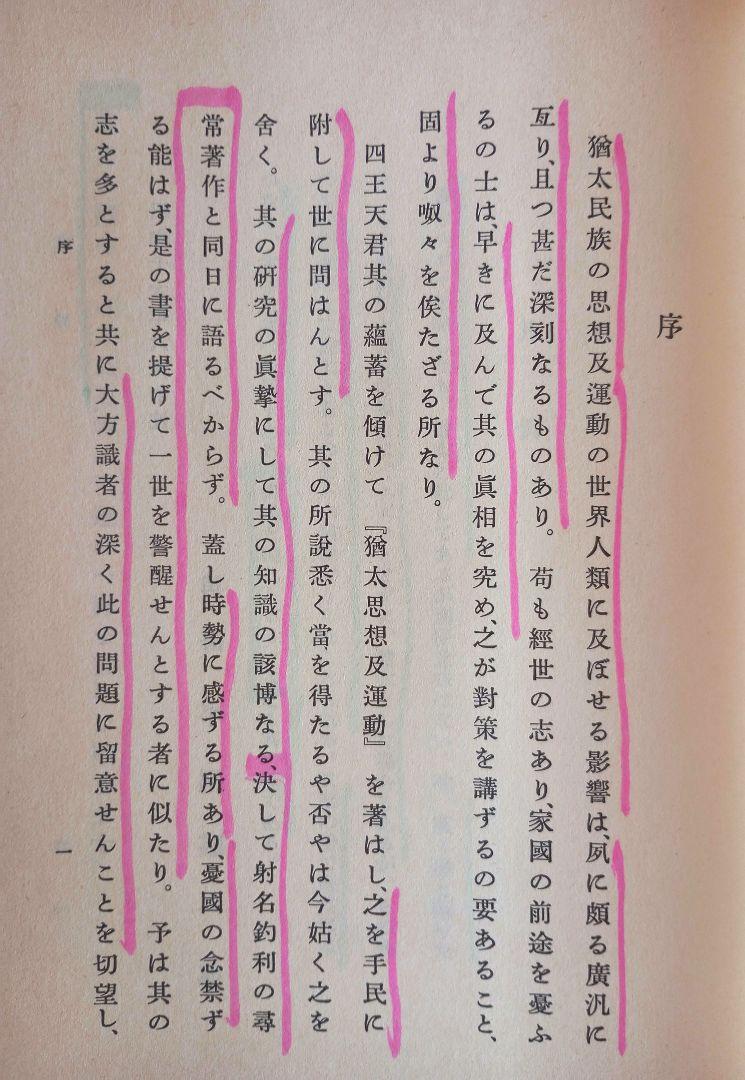 序
猶太民族の思想及運動の世界人類に及ぼせる影響は、夙に頗る廣汎に
亙り、且つ甚だ深刻なるものあり。苟も經世の志あり、家國の前途を憂ふ
るの士は、早きに及んで其の眞相を究め、之が對策を講ずるの要あること、
固より呶々を俟たざる所なり。
四王天君其の蘊蓄を傾けて『猶太思想及運動』を著はし、之を手民に
附して世に問はんとす。其の所說悉く當を得たるや否やは今姑く之を
舍く。其の硏究の眞摯にして其の知識の該博なる、決して射名釣利の尋
常著作と同日に語るべからず。蓋し時勢に感ずる所あり、憂國の念禁ず
る能はず、是の書を提げて一世を警醒せんとする者に似たり。予は其の
志を多とすると共に大方識者の深く此の問題に留意せんことを切望し、
序
一